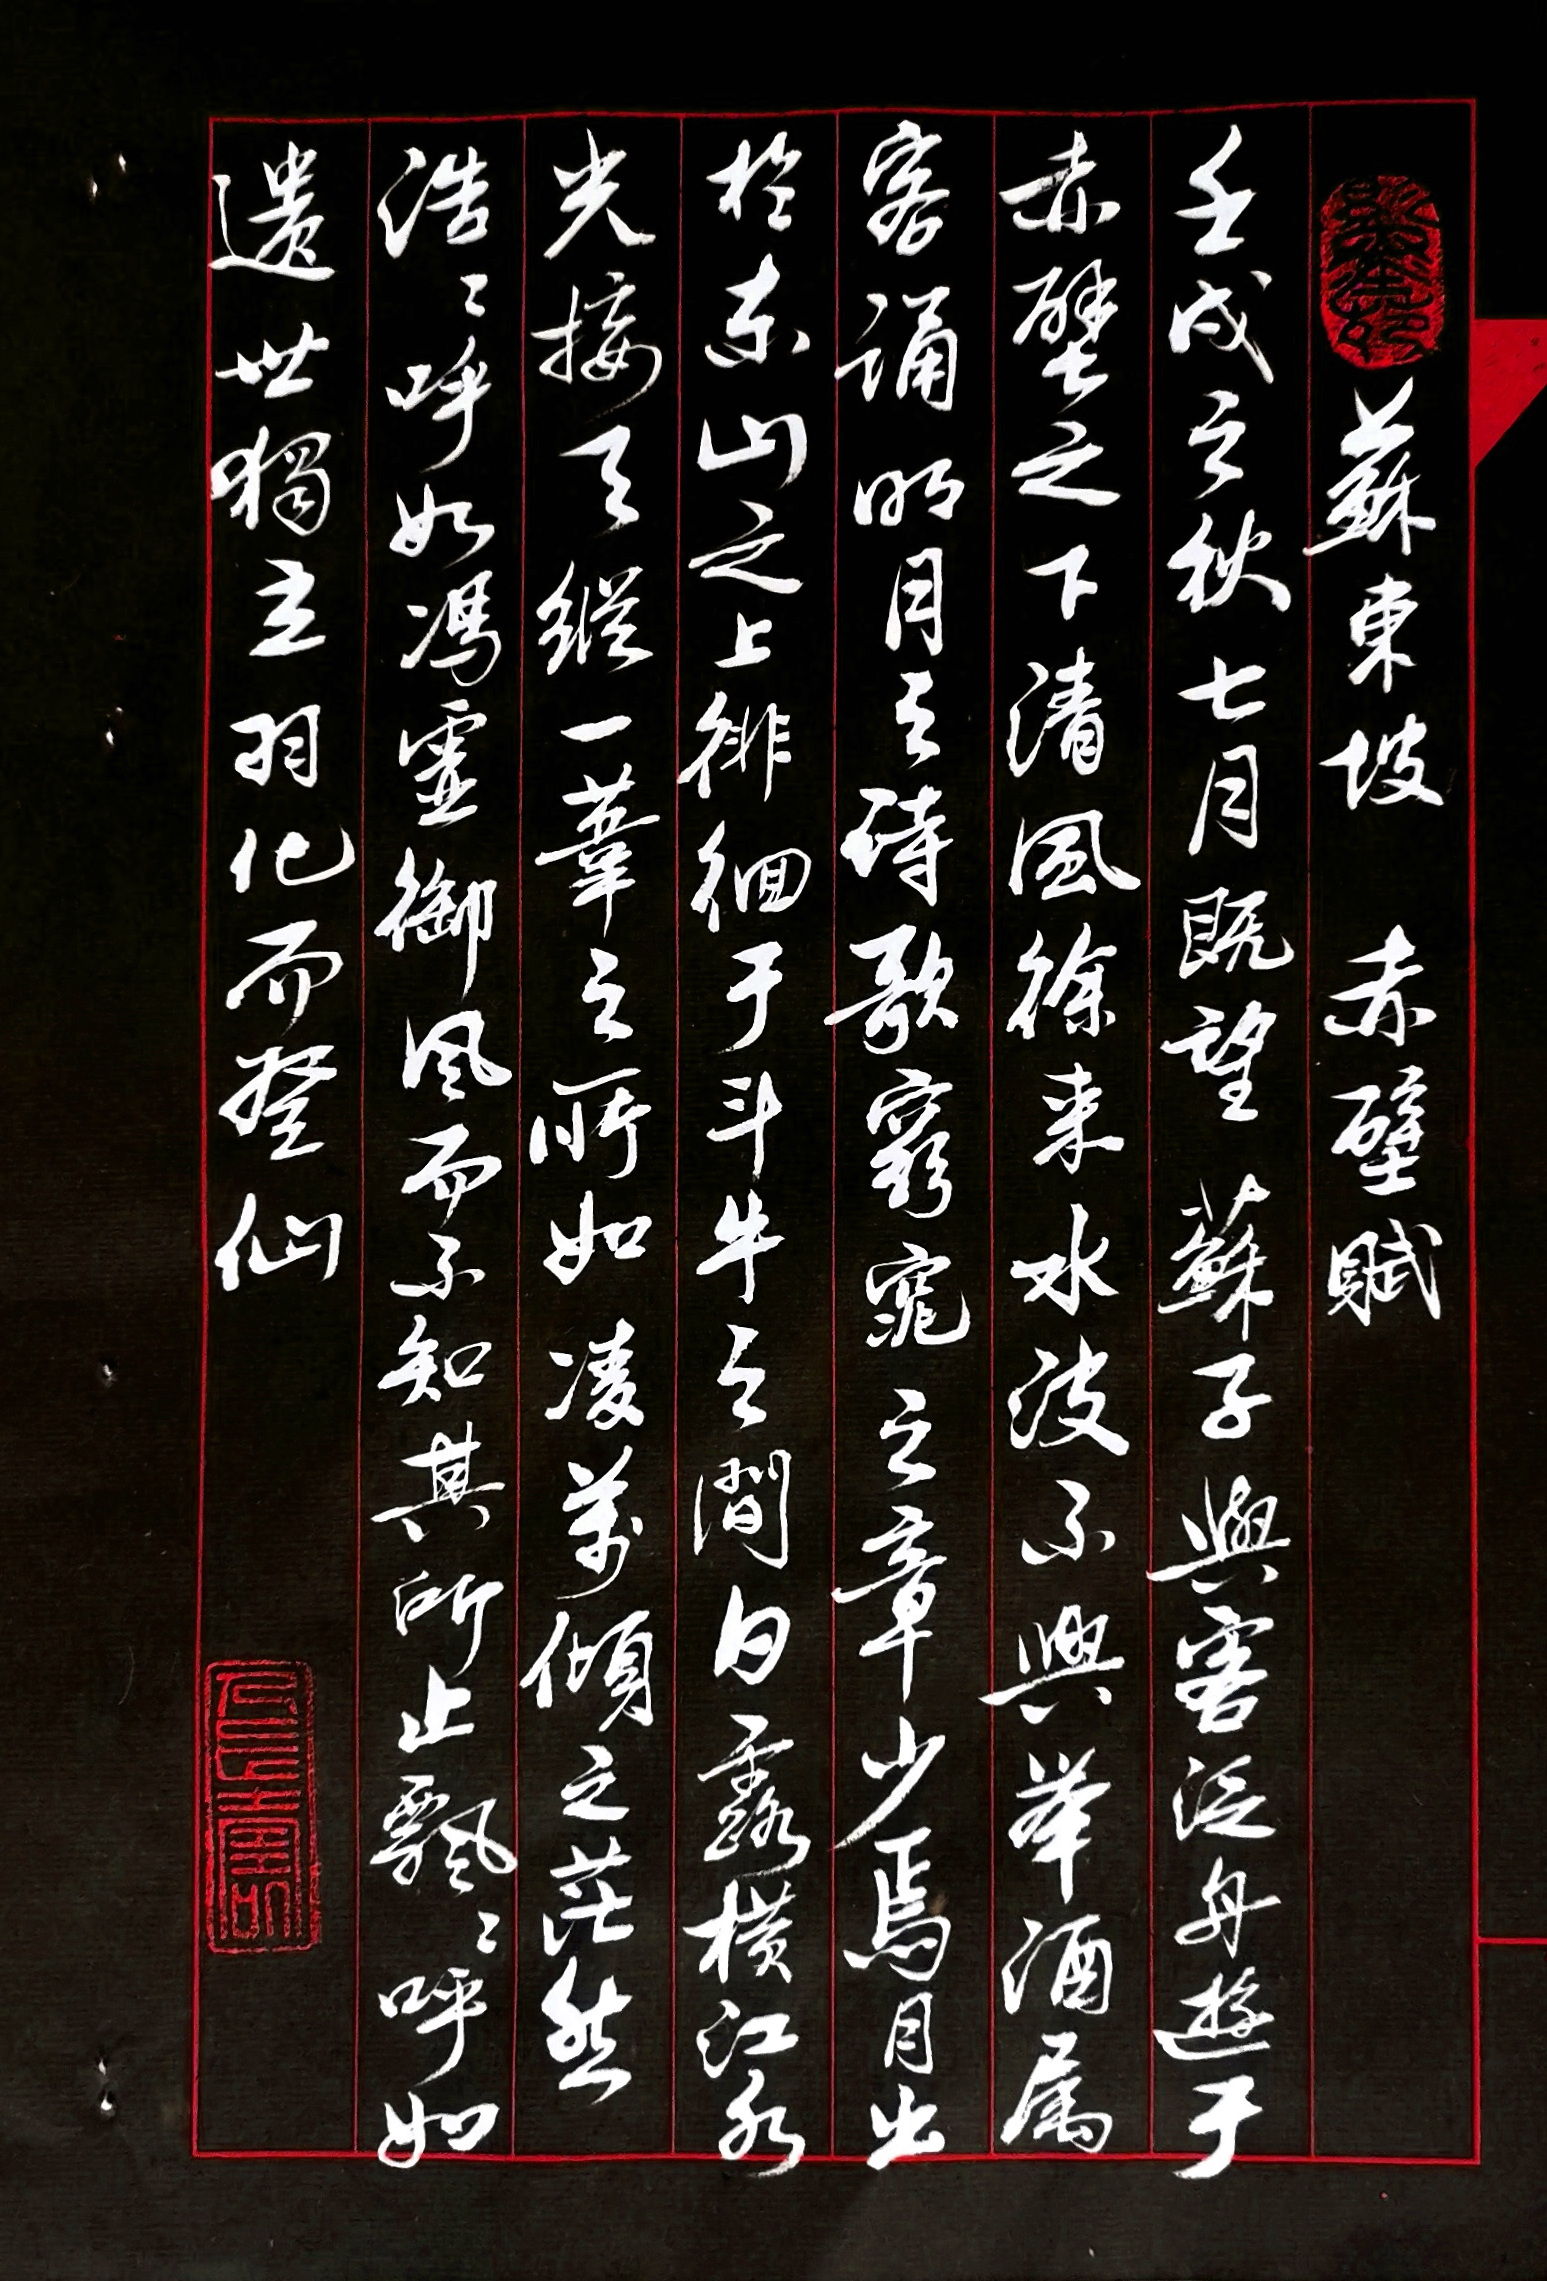 蘇東坡 赤壁賦
壬戌之秋七月既望蘇子與客泛舟遊于
赤壁之下清風徐来水波不興举酒属
客誦明月之诗歌窈窕之章少焉月出
於东山之上徘徊于斗牛之間白露横江水
光接天縱一葦之所如凌萬傾之茫然
浩〻呼如馮虚御風而不知其所止飄〻呼如
遗世獨立羽化而登仙